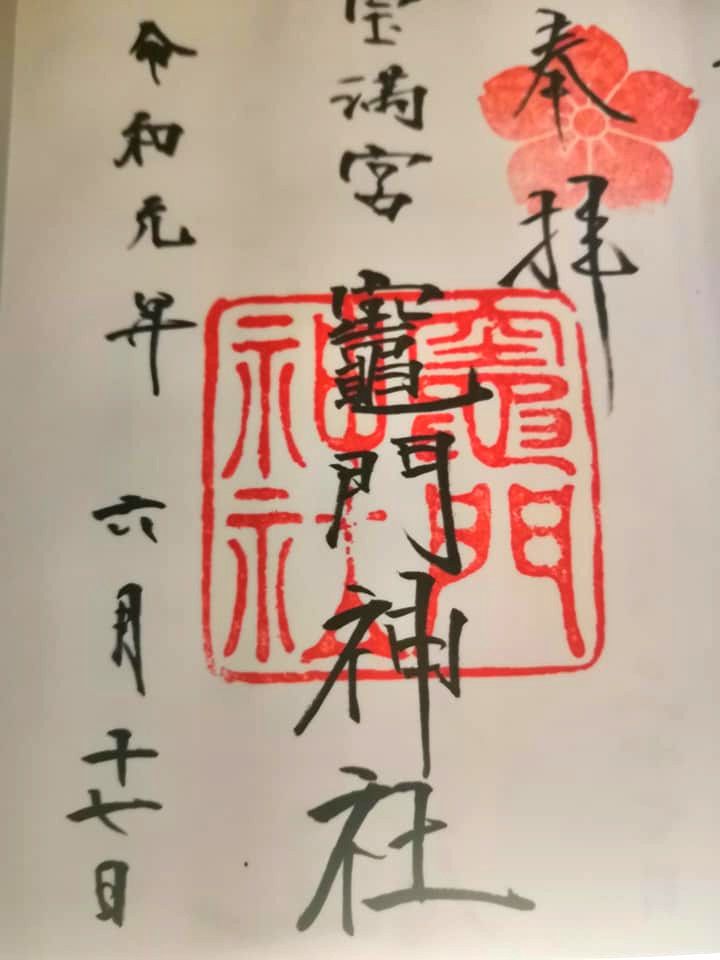 奉拝
宝満宮
竈門神社
竈門神社
令和元年 六月十七日